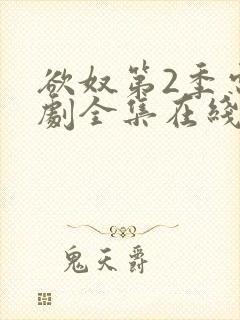 欲奴第2季
劇全集在綫
鬼天爵